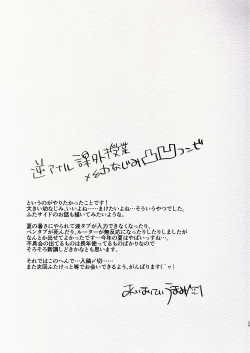 逆アナル課外授業
×幼なじみ凸凹コンビ
というのがやりたかったことです！
大きい幼なじみ、いいよね……まけたいよね…そういうやつでした。
ふたサイドのお話も描いてみたいような。
夏の暑さにやられて液タブが入力できなくなったり、
ペンタブが死んだり、ルーターが無反応になったりしたりしましたが
なんとか出せてよかったです…今年の夏はやばいっすね…。
不具合の出てるものは長年使ってるものばかりなので
そろそろ新調しどきかなとも思います。
それではこのへんで…入稿〆切……
また次回ふたけっと等でお会いできるよう、がんばります（＾▽｜